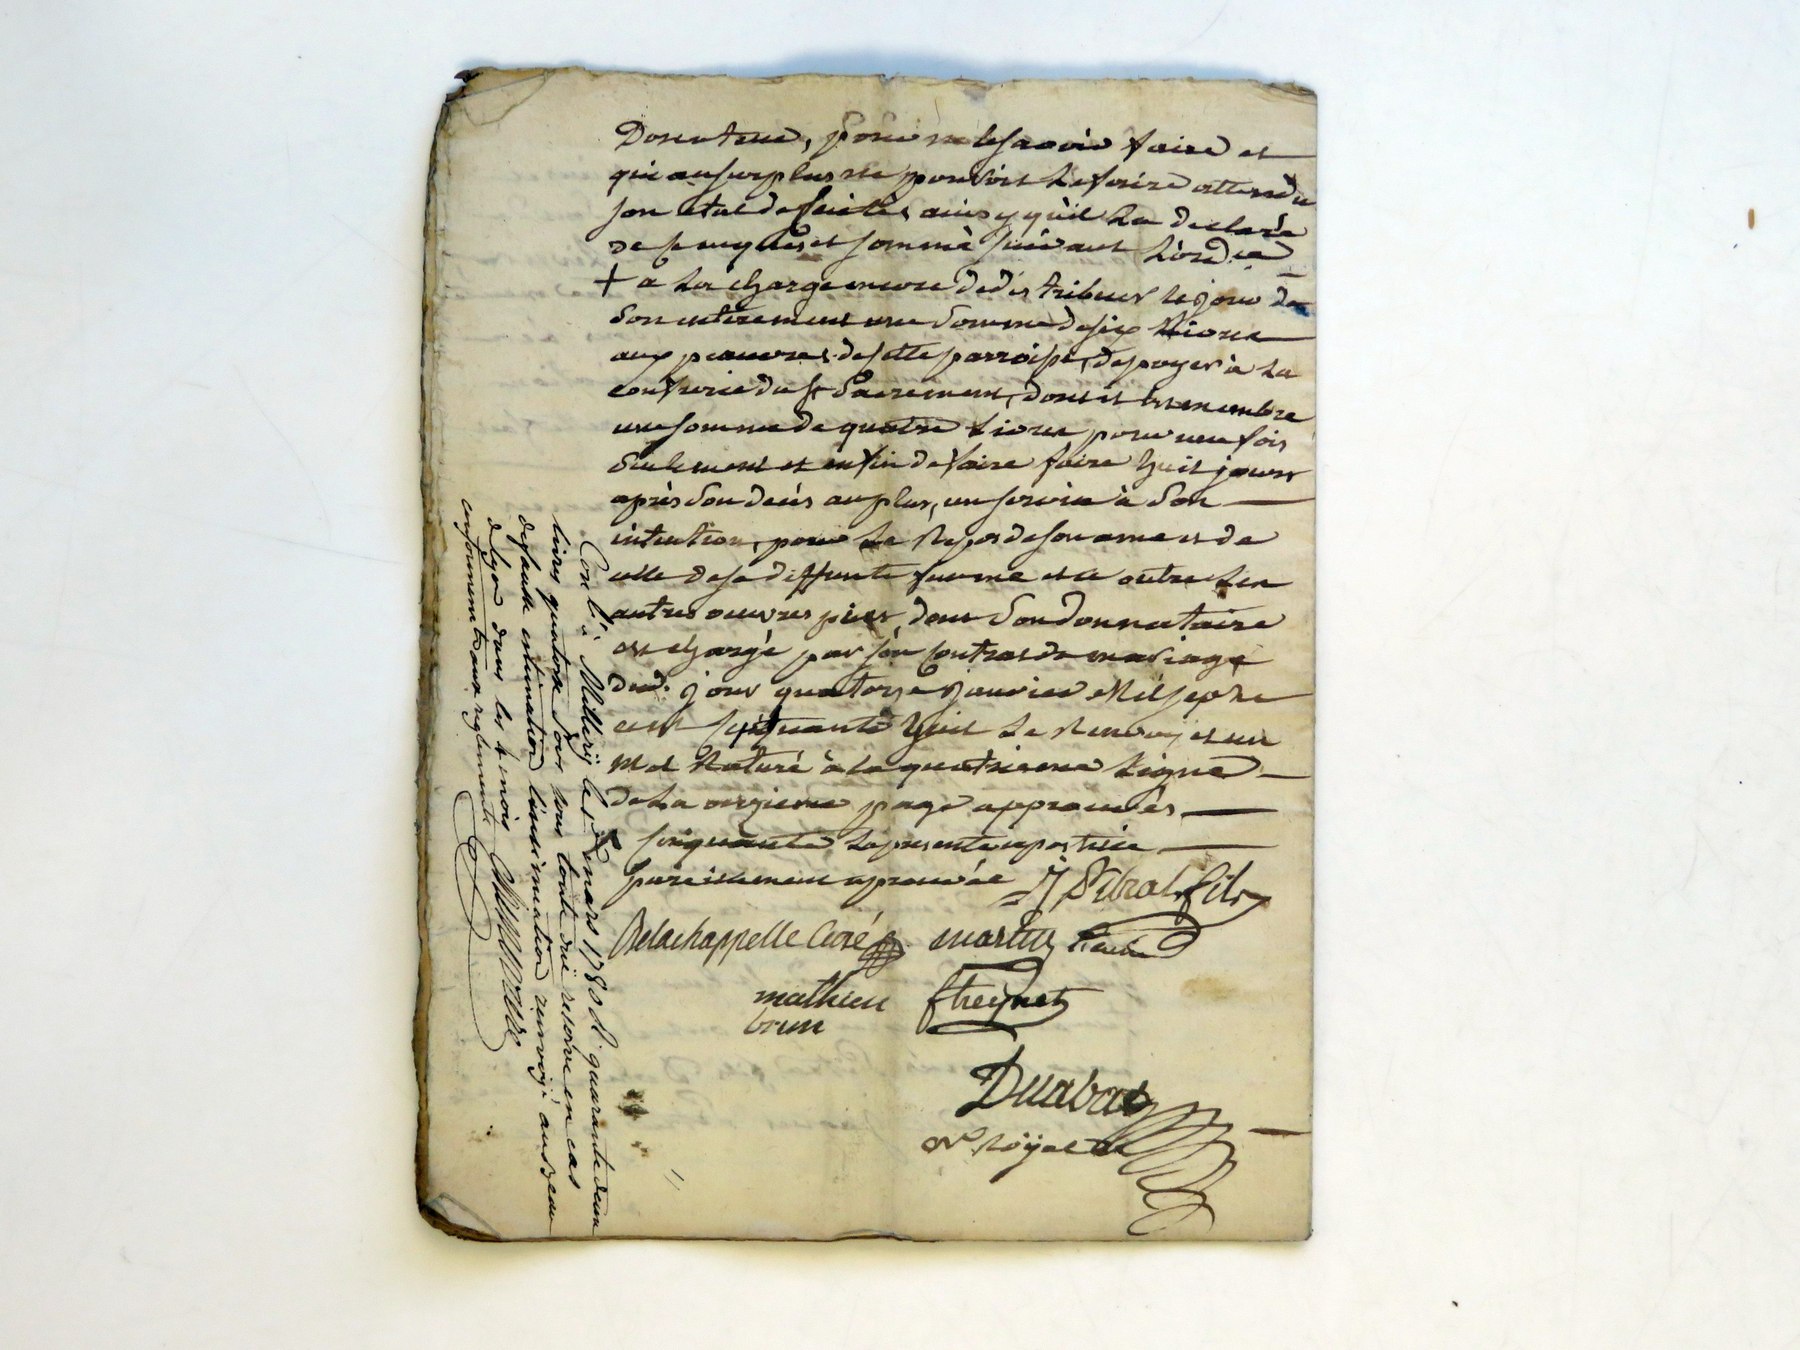 Donateur, pour ne le savoir faire et
qui au surplus ne pouvoit le faire attendu
son etat de ainsy qu'il la declaré
de ce enquis et sommé suivant l'ord.ce
+ a la charge encore de distribuer le jour de
son enterement une somme de six livres
aux pauvres de cette parroisse, de payer à la
confrerie du st Sacrement, dont il est membre
une somme de quatre livres pour une fois
seulement et enfin de faire faire huit jours
après son decès au plus, un service à son
intention, pour le repos de son ame et de
celle de sa deffunte femme et ce outre les
autres oeuvres pies, dont son donnataire
est chargé par son contrat de mariage
dud. jour quatorze janvier mil sept
cent soixante huit le renvoy et un
mot raturé à la quatrieme ligne
de la onzieme page approuvés
cinquante la presente apostille
pareillement aprouvée
J Sibral fils
Delachappelle Curé martin
mathieu Freynet
brun
Duabad
nore royal
Con.lé à Millery le mars 1780 R. quarante deux
livres quatorze sous pour tout droit reservé en cas
de fausse estimation l'insinuation renvoyé au bureau
de lyon dans les 4 mois
conformement aux reglements